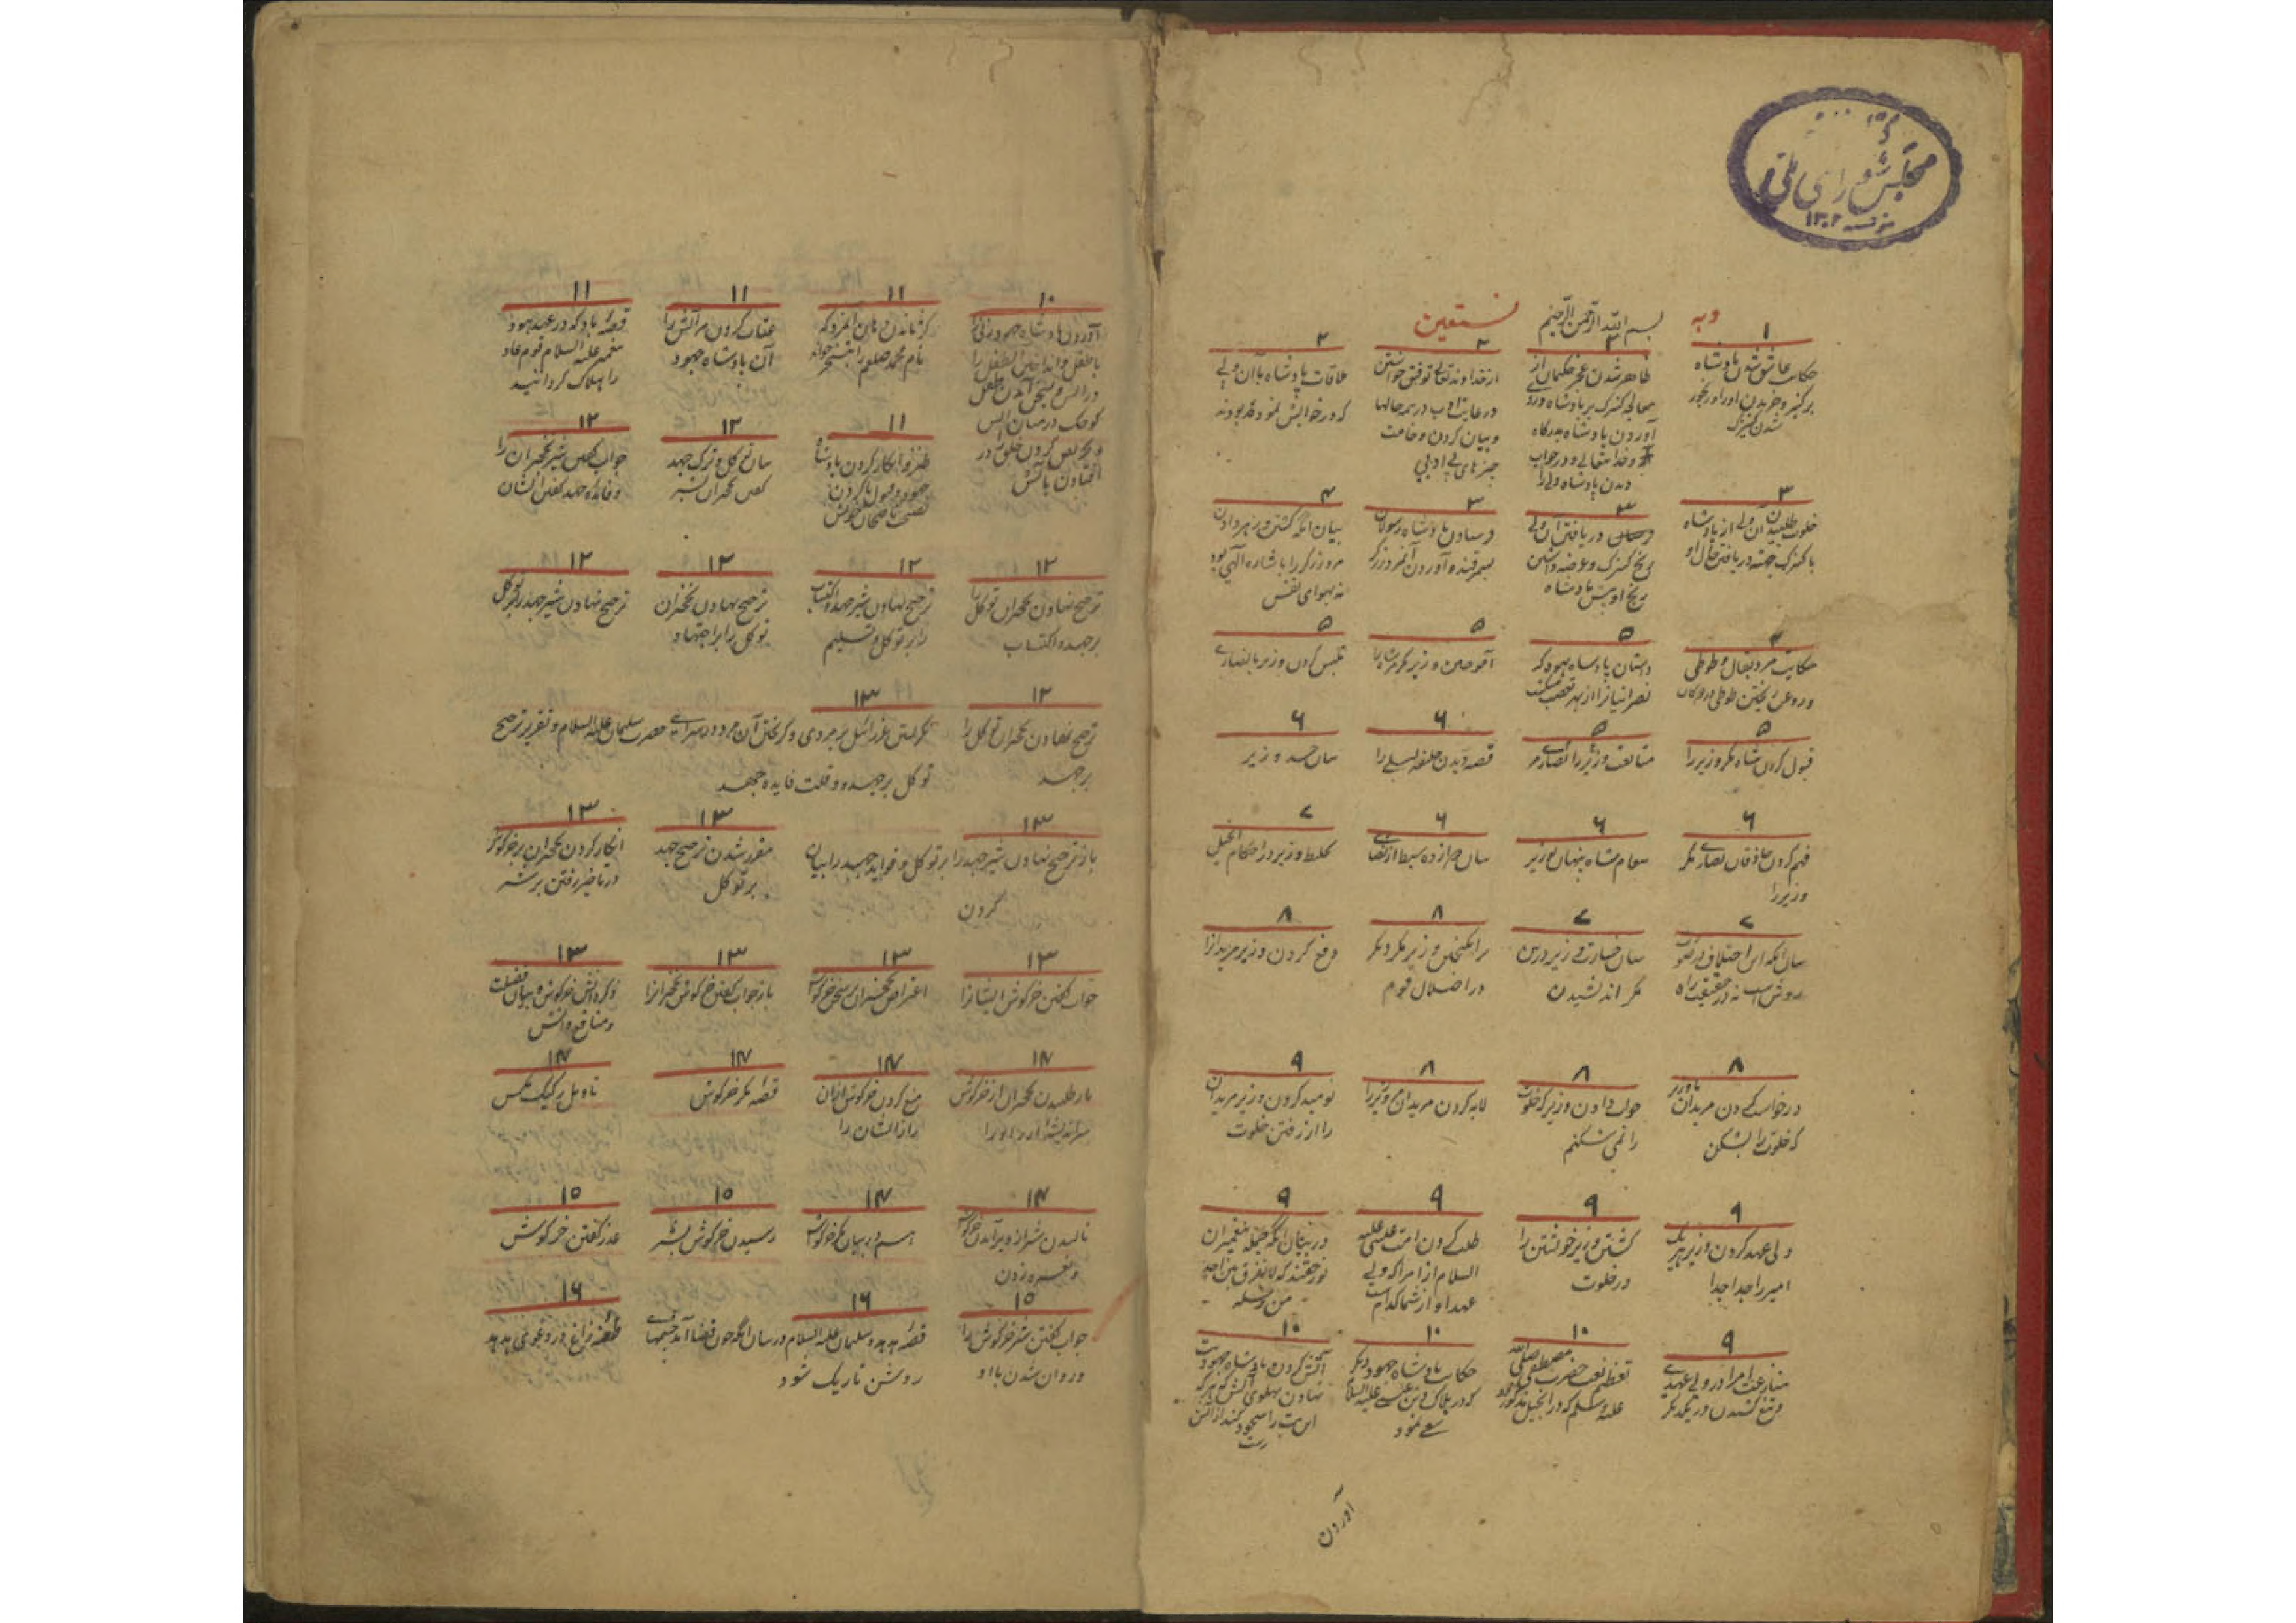 مجلس شورای ملی
سنه ۱۳۰۲
وبه
بسم الله الرحمن الرحیم
نستعین
۱
حکایت عاشق شدن پادشاه
بر کنیزک و خریدن او را و رنجور
شدن کنیزک
۲
ظاهر شدن عجز حکیمان از
معالجه کنیزک بر پادشاه و روی
آوردن پادشاه بدرگاه
خدایتعالی و در خواب
دیدن پادشاه ولی را
۲
از خداوند تعالی توفیق خواستن
در رعایت ادب در همه حالها
و بیان کردن وخامت
چیزهای بی ادبی
۲
ملاقات پادشاه با آن ولی
که در خوابش نموده بودند
۳
خلوت طلبیدن آن ولی از پادشاه
با کنیزک جهت دریافتن حال او
۳
دریافتن آن ولی
رنج کنیزک و عرضه داشتن
رنج او پیش پادشاه
۳
فرستادن پادشاه رسولان
بسمرقند و آوردن آنمرد زرگر
۴
بیان آنکه کشتن و زهر دادن
مرد زرگر را باشاره الهی بود
نه بهوای نفس
۴
حکایت مرد بقال و طوطی
و روغن ریختن طوطی در دکان
۵
داستان پادشاه جهود که
نصرانیانرا از بهر تعصب میکشت
۵
آموختن وزیر مکر مر شاه را
۵
تلبیس کردن وزیر با نصاری
۵
قبول کردن شاه مکر وزیر را
۵
متابعت نصاری مر وزیر را
۶
قصه دیدن خلیفه لیلی را
۶
بیان حسد وزیر
۶
فهم کردن حاذقان نصاری مکر
وزیر را
۶
پیغام شاه پنهان بوزیر
۶
بیان دوازده سبط از نصاری
۷
تخلیط وزیر در احکام انجیل
۷
بیان آنکه این اختلاف در صورت
روش است نه در حقیقت راه
۷
بیان خسارت وزیر درین
مکر اندیشیدن
۸
برانگیختن وزیر مکر دیگر
در اضلال قوم
۸
دفع کردن وزیر مریدانرا
۸
درخواست کردن مریدان با وزیر
که خلوت را بشکن
۸
جواب دادن وزیر که خلوت
را نمی شکنم
۸
لابه کردن مریدان وزیر را
۹
نومید کردن وزیر مریدان
را از رفتن خلوت
۹
ولی عهد کردن وزیر هر یک
امیر را جدا جدا
۹
کشتن وزیر خویشتن را
در خلوت
۹
طلب کردن امت عیسی علیه
السلام از امرا که ولی
عهد او از شما کدام است
۹
در بیان آنکه جمله پیغمبران
بر حقند که لا نفرق بین احد
من رسله
۹
منازعت امرا در ولی عهدی
و تیغ کشیدن در یکدیگر
۱۰
تعظیم نعت حضرت مصطفی صلی الله
علیه و سلم که در انجیل مذکور بود
۱۰
حکایت پادشاه جهود دیگر
که در هلاک دین عیسی علیه السلام
سعی نمود
۱۰
آتش کردن پادشاه جهود و بت
نهادن پهلوی آتش که هر که
این بت را سجود کند از آتش
رست
آوردن
۱۰
آوردن پادشاه جهود زنی را
با طفل و انداختن آن طفل را
در آتش و بسخن آمدن طفل
کوچک در میان آتش
و تحریص کردن خلق را در
افتادن بآتش
۱۱
کژ ماندن دهان آنمرد که
نام محمد صلعم را بتسخر خواند
۱۱
عتاب کردن مر آتش را
آن پادشاه جهود
۱۱
قصه باد که در عهد هود
پیغمبر علیه السلام قوم عاد
را هلاک گردانید
۱۱
طنز و انکار کردن پادشاه
جهود و قبول ناکردن
نصیحت ناصحان خویش
۱۲
بیان توکل و ترک جهد
گفتن نخچیران بشیر
۱۲
جواب گفتن شیر نخچیران را
و فایده جهد گفتن ایشان
۱۲
ترجیح نهادن نخچیران توکل را
بر جهد و اکتساب
۱۲
ترجیح نهادن شیر جهد و اکتساب
را بر توکل و تسلیم
۱۲
ترجیح نهادن نخچیران
توکل را بر اجتهاد
۱۲
ترجیح نهادن شیر جهد را بر توکل
۱۲
ترجیح نهادن نخچیران توکل را
بر جهد
۱۳
نگریستن عزرائیل بر مردی و گریختن آن مرد در سرای حضرت سلیمان علیه السلام و تقریر ترجیح
توکل بر جهد و قلت فایده جهد
۱۳
باز ترجیح نهادن شیر جهد را بر توکل و فواید جهد را بیان
کردن
۱۳
مقرر شدن ترجیح جهد
بر توکل
۱۳
انکار کردن نخچیران بر خرگوش
در تاخیر رفتن بر شیر
۱۳
جواب گفتن خرگوش ایشانرا
۱۳
اعتراض نخچیران بر سخن خرگوش
۱۳
باز جواب گفتن خرگوش نخچیرانرا
۱۳
ذکر دانش خرگوش و بیان فضیلت
و منافع دانش
۱۴
باز طلبیدن نخچیران از خرگوش
سر اندیشه او را
۱۴
منع کردن خرگوش ازان
راز ایشان را
۱۴
قصه مکر خرگوش
۱۴
تاویل رکیک مگس
۱۴
نالیدن شیر از دیر آمدن خرگوش
و نعره زدن
۱۴
هم در بیان مکر خرگوش
۱۵
رسیدن خرگوش بشیر
۱۵
عذر گفتن خرگوش
۱۵
جواب گفتن شیر خرگوش را
و روان شدن با او
۱۶
قصه هدهد و سلیمان علیه السلام در بیان آنکه چون قضا آید چشمهای
روشن تاریک شود
۱۶
طعنه زاغ در دعوی هدهد